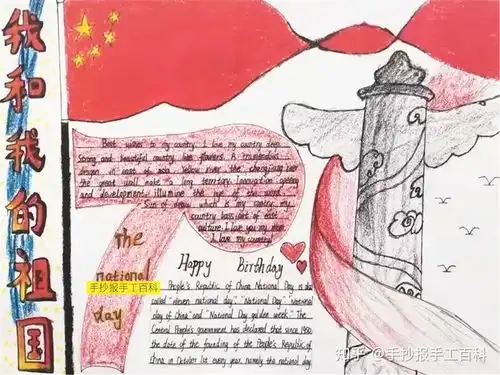 我和我的祖国
Best wishes to my country. I love my country deep.
Strong and beautiful country, like flowers. A
dragon in east of asia. Yellow river the changjiang river
the great wall make a long territory. Innovation opening
and development illumine the world.
Sun of
country, east
culture. I love you my mom
I love my country.
The
national
手抄报手工百科
day
Happy Birthday
People's Republic of China National Day is also
called "eleven national day", "National Day", "National
day of China" and "National Day golden week". The
Central People's government has declared that since 1950
the date of the founding of the People's Republic of
China in October 1st every year, namely the national day.
知乎 @手抄报手工百科